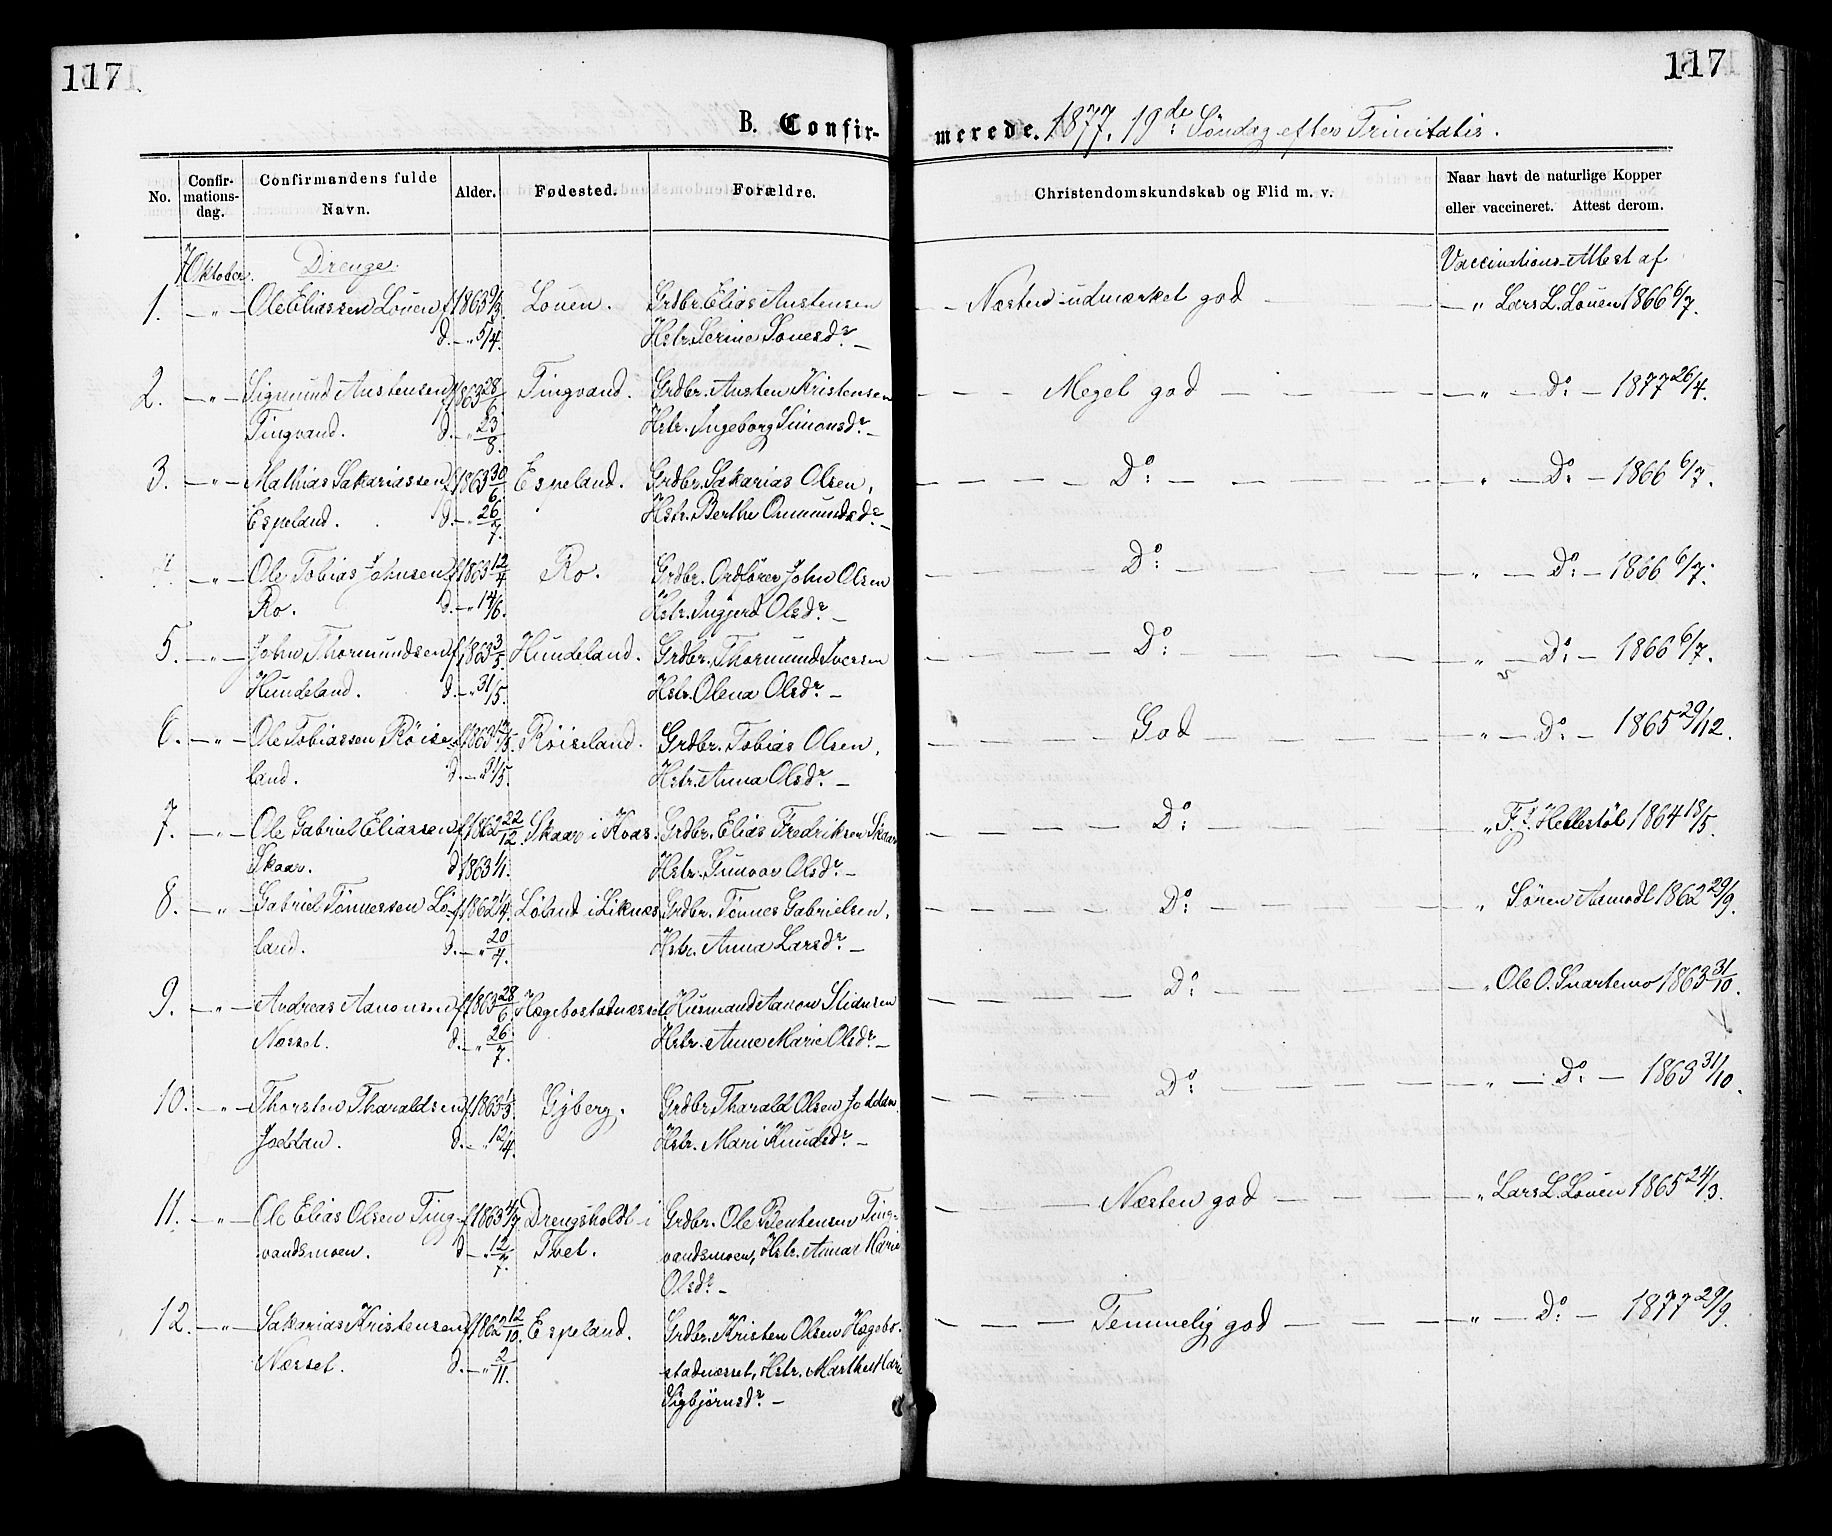 117.
117
B. Confir-
merede. 1877. 19de Søndag efter Trinitatis.
No.
Confir-
mations-
dag.
Confirmandens fulde
Navn.
Alder.
Fødested.
Forældre.
Christendomskundskab og Flid m. v.
Naar havt de naturlige Kopper
eller vaccineret. Attest derom.
7 Oktober. Drenge. Vaccinations-Attest af
1. — " — Ole Eliassen Louen f. 1863 9/3. Louen. Grdbr. Elias Austensen — Næsten udmærket god — — — " Lars L. Louen 1866 6/7.
d. — " 5/4. Hstr. Serine Tonesdr. —
2. — " — Sigmund Austensen f. 1863 28/6 Tingvand. Grdbr. Austen Kristensen — — — Meget god — — — — " — Do: — 1877 26/4.
Tingvand. d. — " 23/8. Hstr. Ingeborg Simonsdr. —
3. — " — Mathias Sakariassen f. 1863 30/6 Espeland. Grdbr. Sakarias Olsen, — — — — Do: — — — — " — Do: — 1866 6/7.
Espeland. d. — " 26/7. Hstr. Berthe Omundsdr. —
4. — " — Ole Tobias Johnsen f. 1863 12/4 Ro. Grdbr. Ordfører John Olsen — — — — Do: — — — — " — Do: — 1866 6/7.
Ro. d. — " 14/6. Hstr. Ingjerd Olsdr. —
5. — " — John Thormundsen f. 1863 3/5. Hundeland. Grdbr. Thormund Iversen — — — — Do: — — — — " — Do: — 1866 6/7.
Hundeland. d. — " 31/5. Hstr. Olena Olsdr. —
6. — " — Ole Tobiassen Röise- f. 1863 /5. Röiseland. Grdbr. Tobias Olsen, — — — — God — — — — " — Do: — 1865 29/12.
land. d. — " 31/5. Hstr. Anna Olsdr. —
7. — " — Ole Gabriel Eliassen f. 1862 22/12. Skaar i Kvas. Grdbr. Elias Fredriksen Skaar — — — — Do: — — — — " F. T. Hellestöl 1864 18/5.
Skaar. d. 1863 1/1. Hstr. Gunvor Olsdr. —
8. — " — Gabriel Tönnessen Lö- f. 1862 1/4. Löland i Liknes. Grdbr. Tönnes Gabrielsen, — — — — Do: — — — — " Sören Aamodt 1862 29/9.
land. d. — " 20/4. Hstr. Anna Larsdr. —
9. — " — Andreas Aanonsen f. 1863 28/6 Hægebostadnæsset. Husmand Aanon Stiansen — — — — Do: — — — — " Ole O. Snartemo 1863 31/10.
Næsset. d. — " 26/7. Hstr. Anne Marie Olsdr. —
10. — " — Thorsten Tharaldsen f. 1863 1/3. Vyberg. Grdbr. Tharald Olsen Joddan. — — — — Do: — — — — " — Do: — 1863 31/10.
Joddan. d. — " 12/4. Hstr. Mari Knudsdr. —
11. — " — Ole Elias Olsen Ting- f. 1863 4/7. Drengsholdt i Grdbr. Ole Bentensen Ting- — — — — Næsten god — — — — " Lars L. Louen 1865 24/3.
vandsmoen. d. — " 12/7. Tvet. vandsmoen, Hstr. Anna Marie
Olsdr. —
12. — " — Sakarias Kristensen f. 1862 12/10. Espeland. Grdbr. Kristen Olsen Hægebo- — — — — Temmelig god — — — — " — Do: — 1877 29/9.
Næsset. d. — " 2/11. stadnæsset, Hstr. Marthe Mari
Sigbjörnsdr. —